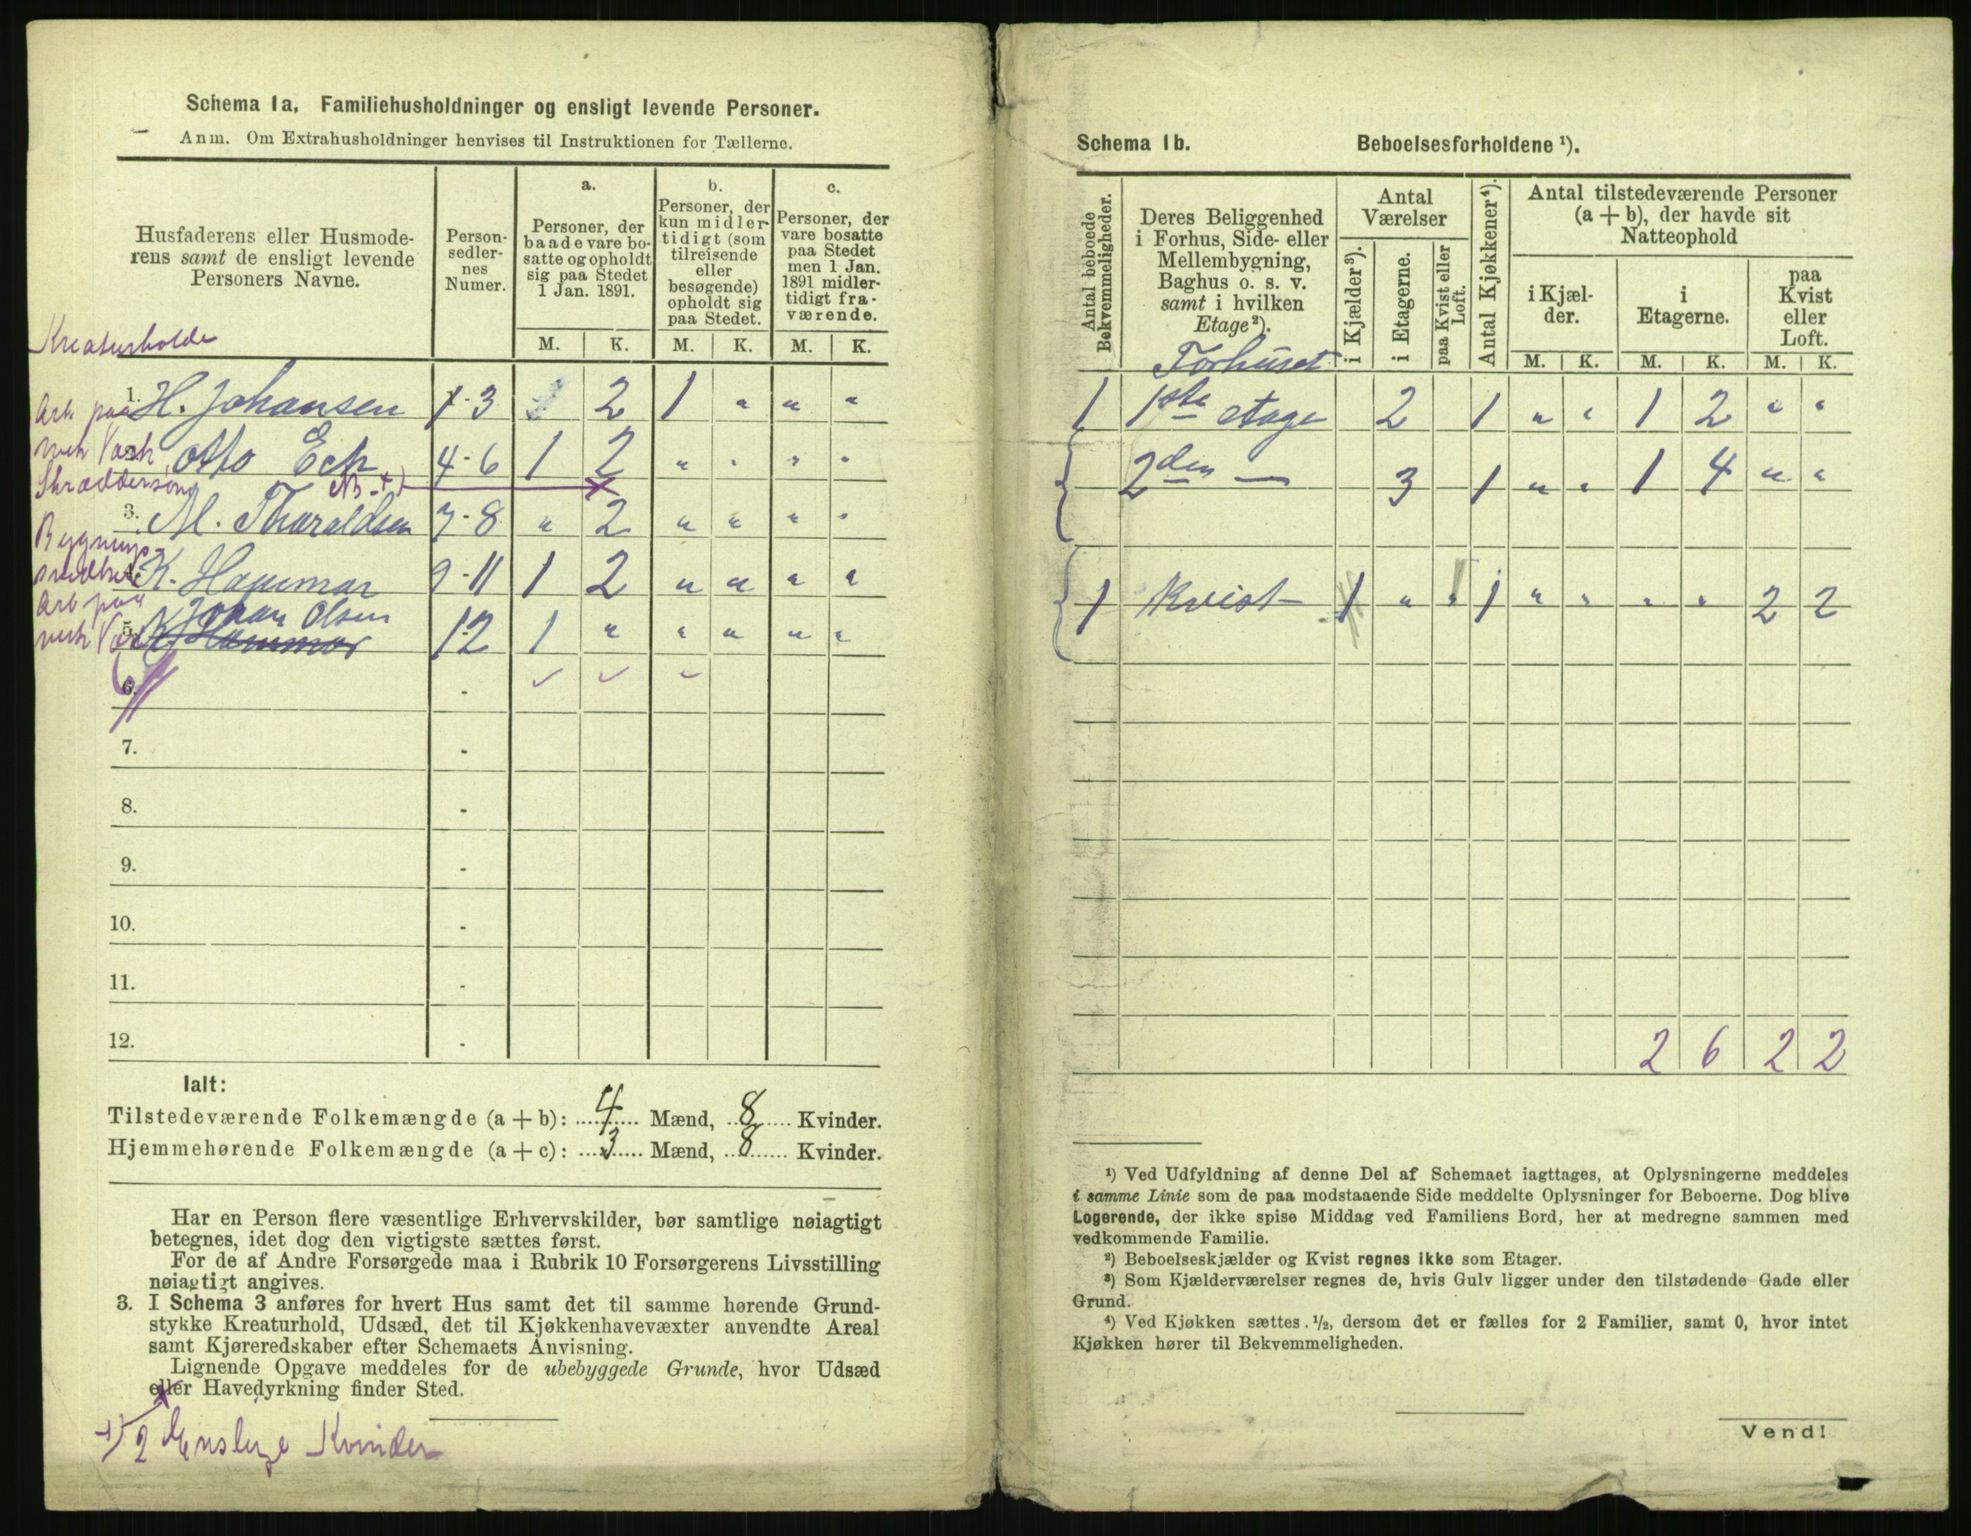 Schema 1a. Familiehusholdninger og ensligt levende Personer.
Anm. Om Extrahusholdninger henvises til Instruktionen for Tællerne.
Husfaderens eller Husmode-
rens samt de ensligt levende
Personers Navne.
Person-
sedler-
nes
Numer.
a.
Personer, der
baade vare bo-
satte og opholdt
sig paa Stedet
1 Jan. 1891.
b.
Personer, der
kun midler-
tidigt (som
tilreisende
eller
besøgende)
opholdt sig
paa Stedet.
c.
Personer, der
vare bosatte
paa Stedet
men 1 Jan.
1891 midler-
tidigt fra-
værende.
M. K. M. K. M. K.
Kreaturholde
1. H. Johansen 1-3 2 1 " " "
Arb paa
mek Værk
2. Otto Eck 4-6 1 2 " " " "
Skræddersøn NB +)
3. M. Tharaldsen 7-8 " 2 " " " "
Bygnings-
snedker
4. K. Hammar 9-11 1 2 " " " "
Arb paa
mek Værk
Johan Olsen
5. K. Hammar 12 1 " " " " "
6. -
7. -
8. -
9. -
10. -
11. -
12. -
Ialt:
Tilstedeværende Folkemængde (a + b): 4 Mænd, 8 Kvinder.
Hjemmehørende Folkemængde (a + c): 3 Mænd, 8 Kvinder.
Har en Person flere væsentlige Erhvervskilder, bør samtlige nøiagtigt
betegnes, idet dog den vigtigste sættes først.
For de af Andre Forsørgede maa i Rubrik 10 Forsørgerens Livsstilling
nøiagtigt angives.
3. I Schema 3 anføres for hvert Hus samt det til samme hørende Grund-
stykke Kreaturhold, Udsæd, det til Kjøkkenhavevæxter anvendte Areal
samt Kjøreredskaber efter Schemaets Anvisning.
Lignende Opgave meddeles for de ubebyggede Grunde, hvor Udsæd
eller Havedyrkning finder Sted.
+) 2 Enslige Kvinder
Schema 1b. Beboelsesforholdene ¹).
Antal beboede
Bekvemmeligheder.
Deres Beliggenhed
i Forhus, Side- eller
Mellembygning,
Baghus o. s. v.
samt i hvilken
Etage²).
Antal
Værelser
i Kjælder³).
i Etagerne.
paa Kvist eller
Loft.
Antal Kjøkkener⁴).
Antal tilstedeværende Personer
(a + b), der havde sit
Natteophold
i Kjæl-
der.
i
Etagerne.
paa
Kvist
eller
Loft.
M. K. M. K. M. K.
Forhuset
1 1ste etage 2 1 " " 1 2 " "
2den — 3 1 " " 1 4 " "
1 Kvist 1 " " 1 " " " " 2 2
2 6 2 2
¹) Ved Udfyldning af denne Del af Schemaet iagttages, at Oplysningerne meddeles
i samme Linie som de paa modstaaende Side meddelte Oplysninger for Beboerne. Dog blive
Logerende, der ikke spise Middag ved Familiens Bord, her at medregne sammen med
vedkommende Familie.
²) Beboelseskjælder og Kvist regnes ikke som Etager.
³) Som Kjælderværelser regnes de, hvis Gulv ligger under den tilstødende Gade eller
Grund.
⁴) Ved Kjøkken sættes ½, dersom det er fælles for 2 Familier, samt 0, hvor intet
Kjøkken hører til Bekvemmeligheden.
Vend!